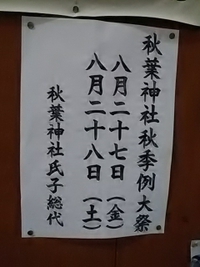 秋葉神社秋季例大祭
八月二十七日（金）
八月二十八日（土）
秋葉神社氏子総代